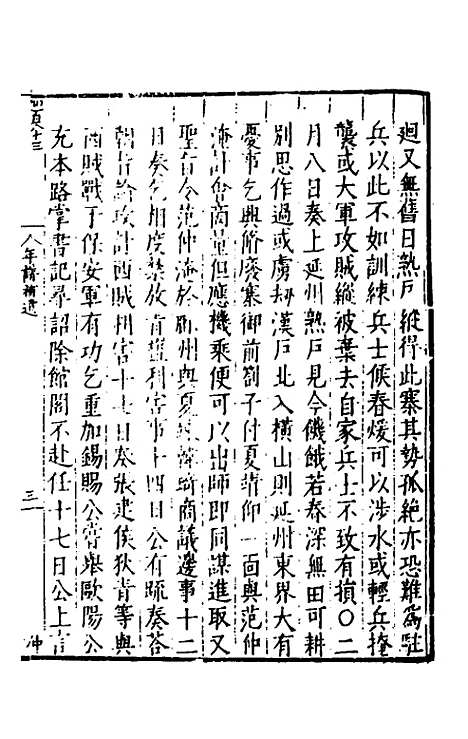 迴又無舊日熟戶縱得此寨其勢孤絕亦恐難為駐
兵以此不如訓練兵士候春煖可以涉水或輕兵掩
襲或大軍攻賊縱被棄去自家兵士不致有損〇二
月八日奏上延州熟戶見今饑餓若春深無田可耕
別思作過或虜刼漢戶北入橫山則延州東界大有
憂事乞與脩廢寨御前劄子付夏竦仰一面與范仲
淹計會商量但應機乘便可以出師即同謀進取又
聖旨令范仲淹於鄜州與夏竦韓琦商議邊事十二
日奏乞相度禁放青鹽利害事十四日公有疏奏荅
朝旨論攻討西賊利害十七日奏張建侯狄青等與
西賊戰于保安軍有功乞重加錫賜公嘗舉歐陽公
充本路掌書記尋詔除館閣不赴任十七日公上言
年譜補遺
三
仲